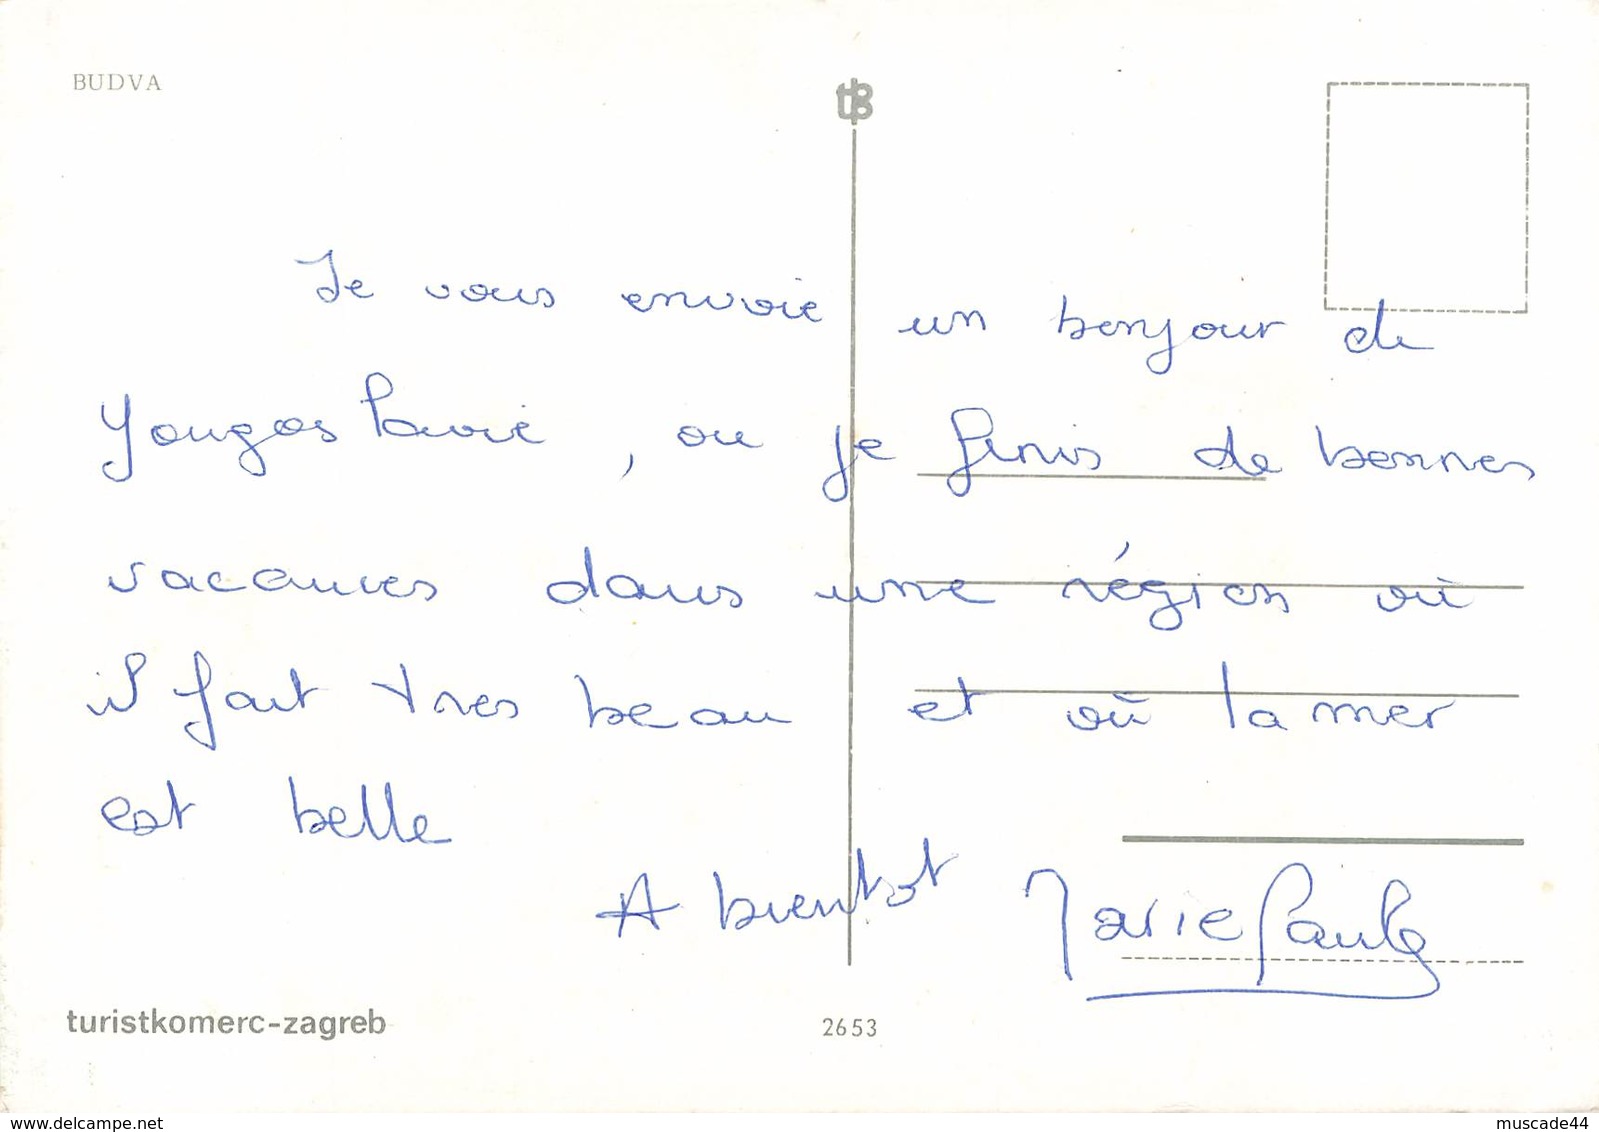 BUDVA
Je vous envoie un bonjour de
Yougoslavie, ou je finis de bonnes
vacances dans une région où
il fait tres beau et où la mer
est belle
A bientot Marie Paule
turistkomerc-zagreb
2653
www.delcampe.net
muscade44